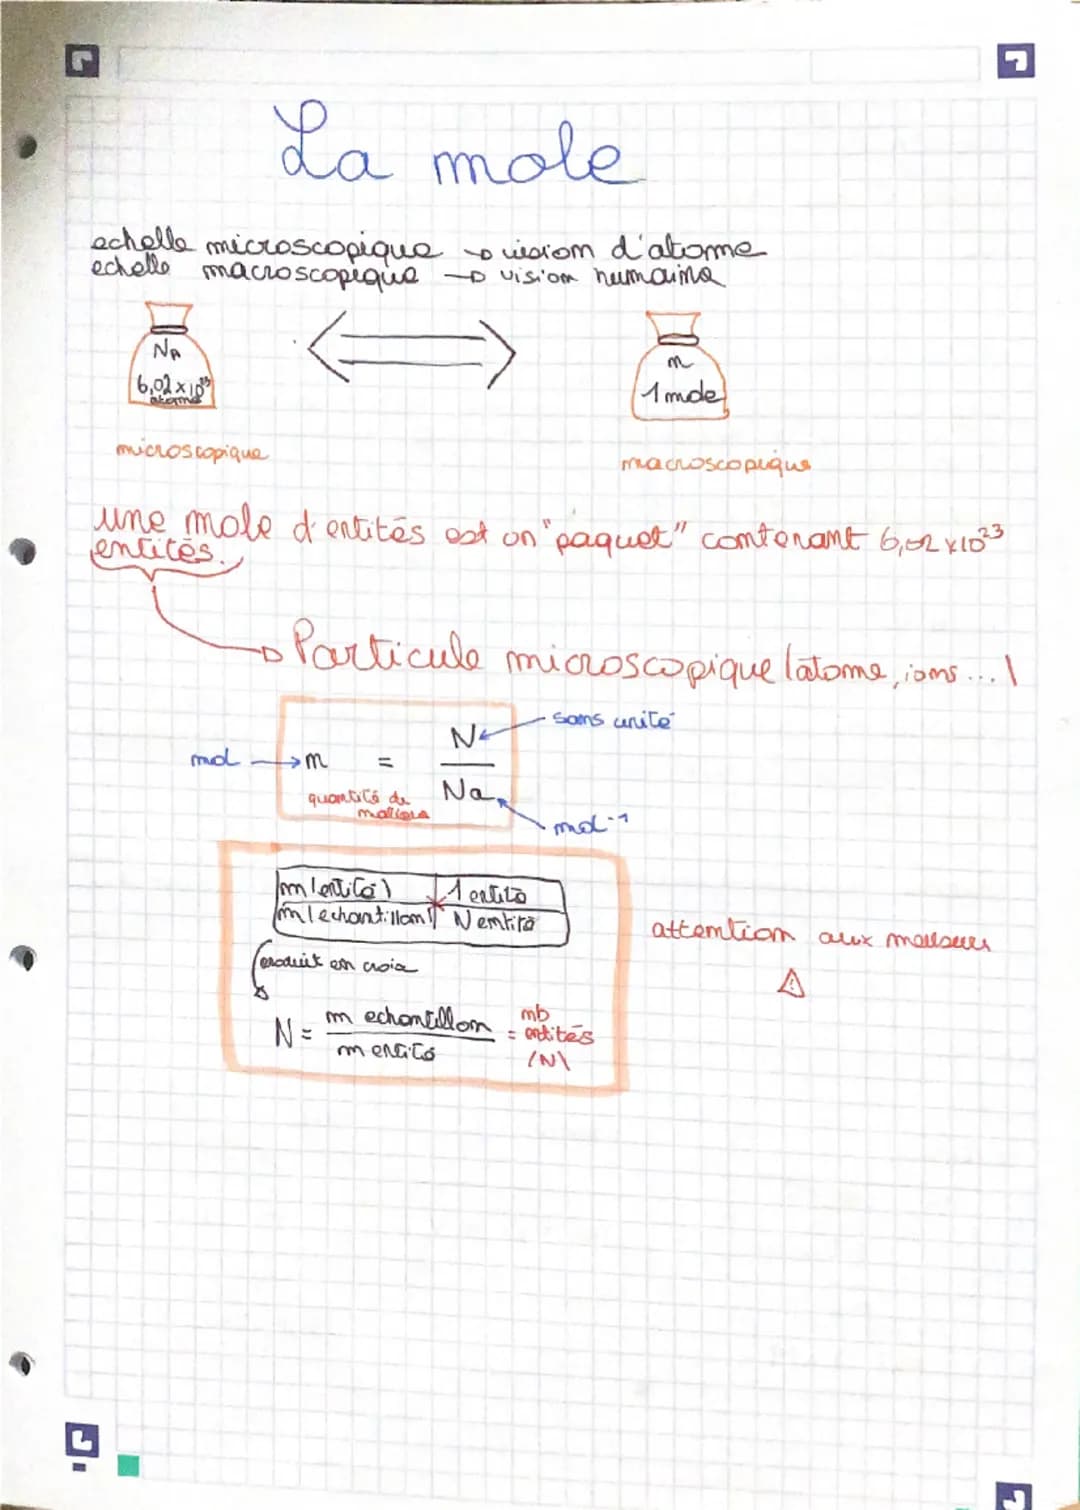 La mole
echelle microscopique → vision d'atome
echelle macroscopique → vision humaine
NA
6,02 x 10²³
atome
n
1 mole
microscopique
macroscopique
une mole d'entités est un "paquet" contenant 6,02 x 10²³
entités.
→ Particule microscopique (atome, ions...)
sans unité
mol → n = N / Na
quantité de
matière
mol⁻¹
m(entité) 1 entité
m(echantillon) N entité
produit en croix
attention aux masses
N = m echantillon / m entité = nb entités (N)